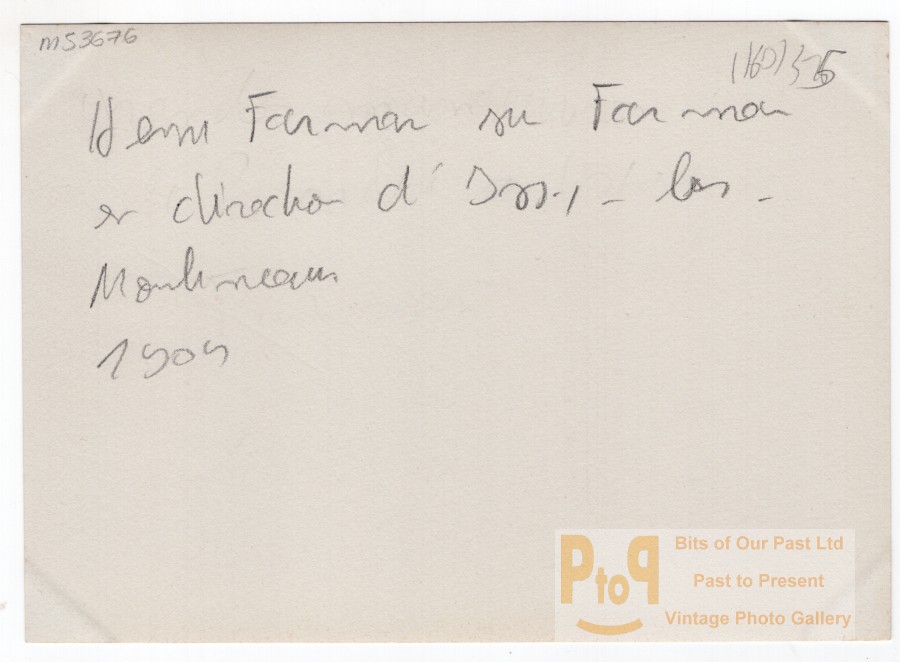 MS3676
Henri Farman sur Farman
en direction d'Issy-les-
Moulineaux
1909
PtoP
Bits of Our Past Ltd
Past to Present
Vintage Photo Gallery